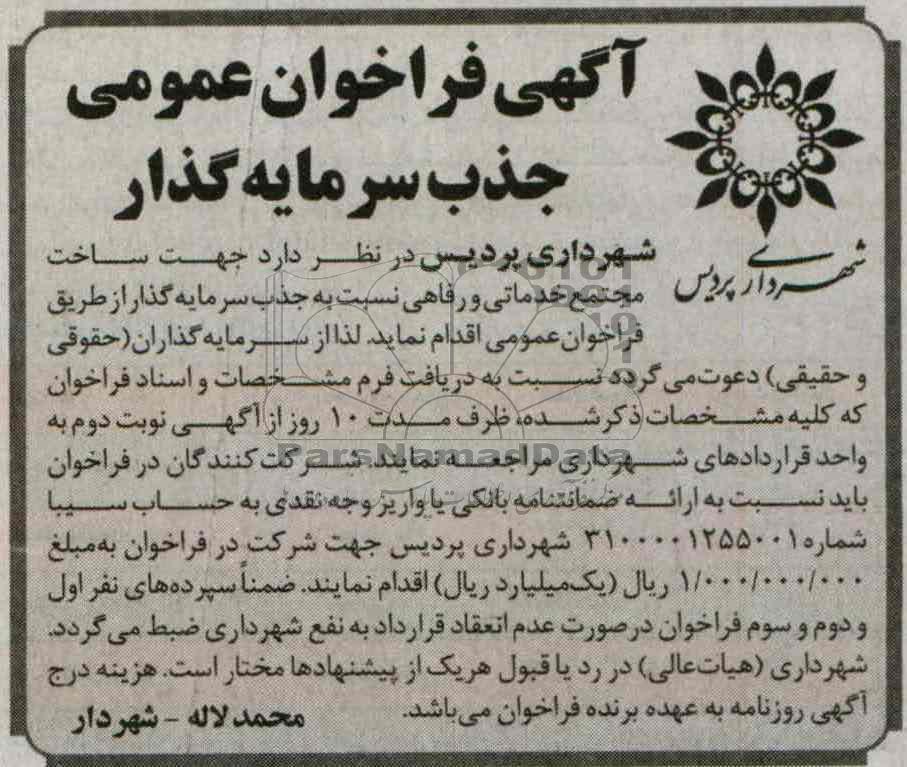 آگهی فراخوان عمومی
جذب سرمایه‌گذار
شهرداری پردیس
شهرداری پردیس در نظر دارد جهت ساخت
مجتمع خدماتی و رفاهی نسبت به جذب سرمایه‌گذار از طریق
فراخوان عمومی اقدام نماید. لذا از سرمایه‌گذاران (حقوقی
و حقیقی) دعوت می‌گردد نسبت به دریافت فرم مشخصات و اسناد فراخوان
که کلیه مشخصات ذکر شده، ظرف مدت ۱۰ روز از آگهی نوبت دوم به
واحد قراردادهای شهرداری مراجعه نمایند. شرکت‌کنندگان در فراخوان
باید نسبت به ارائه ضمانتنامه بانکی یا واریز وجه نقدی به حساب سیبا
شماره ۳۱۰۰۰۰۱۲۵۵۰۰۱ شهرداری پردیس جهت شرکت در فراخوان به‌مبلغ
۱/۰۰۰/۰۰۰/۰۰۰ ریال (یک‌میلیارد ریال) اقدام نمایند. ضمناً سپرده‌های نفر اول
و دوم و سوم فراخوان درصورت عدم انعقاد قرارداد به نفع شهرداری ضبط می‌گردد.
شهرداری (هیات‌عالی) در رد یا قبول هریک از پیشنهادها مختار است. هزینه درج
آگهی روزنامه به عهده برنده فراخوان می‌باشد.
محمد لاله - شهردار
ParsNamadData